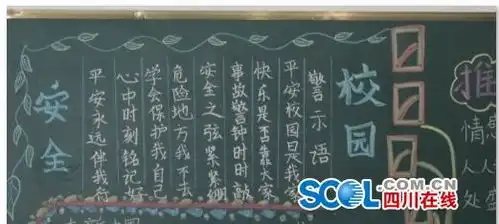 校园
警示语
平安校园是我家
快乐是否靠大家
事故警钟时时敲
安全之弦紧紧绷
危险地方我不去
学会保护我自己
心中时刻铭记好
平安永远伴我行
安全
推
情
人人
处
SCOL.COM.CN
四川在线